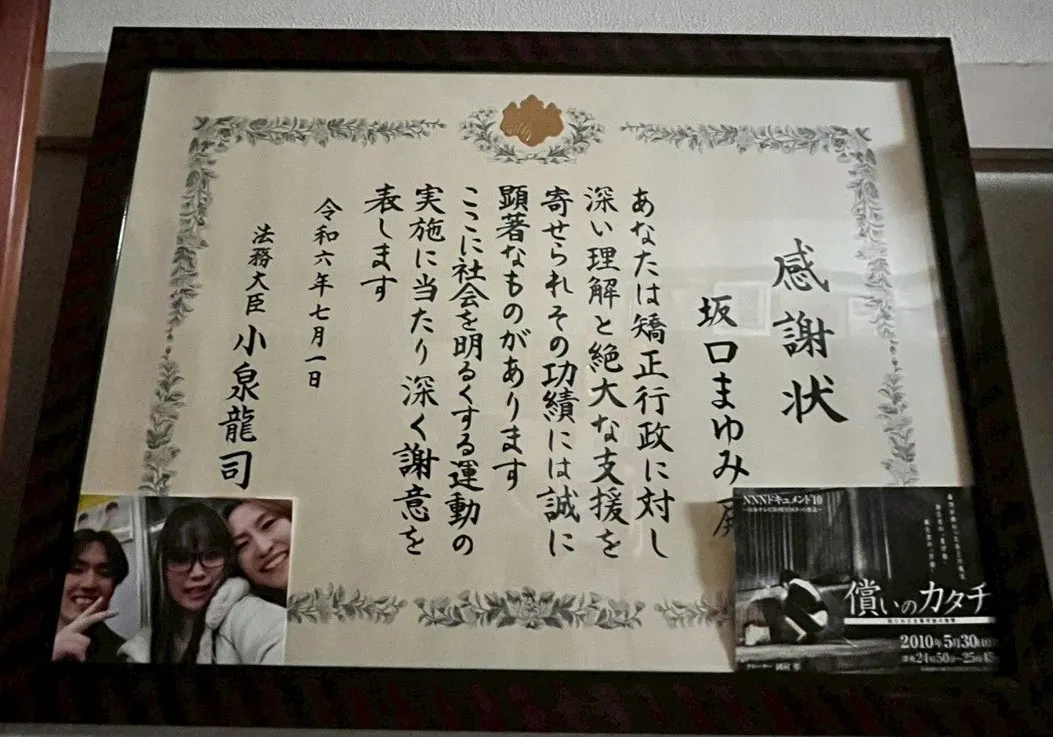 感謝状
坂口まゆみ殿
あなたは矯正行政に対し
深い理解と絶大な支援を
寄せられその功績には誠に
顕著なものがあります
ここに社会を明るくする運動の
実施に当たり深く謝意を
表します
令和六年七月一日
法務大臣 小泉龍司
NNNドキュメント'10
償いのカタチ
2010年5月30日
24時50分〜25時